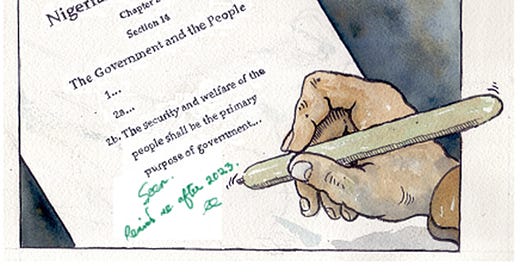 Nigeria
Chapter 2
Section 14
The Government and the People
1...
2a...
2b. The security and welfare of the
people shall be the primary
purpose of government...
Seen.
after 2023.